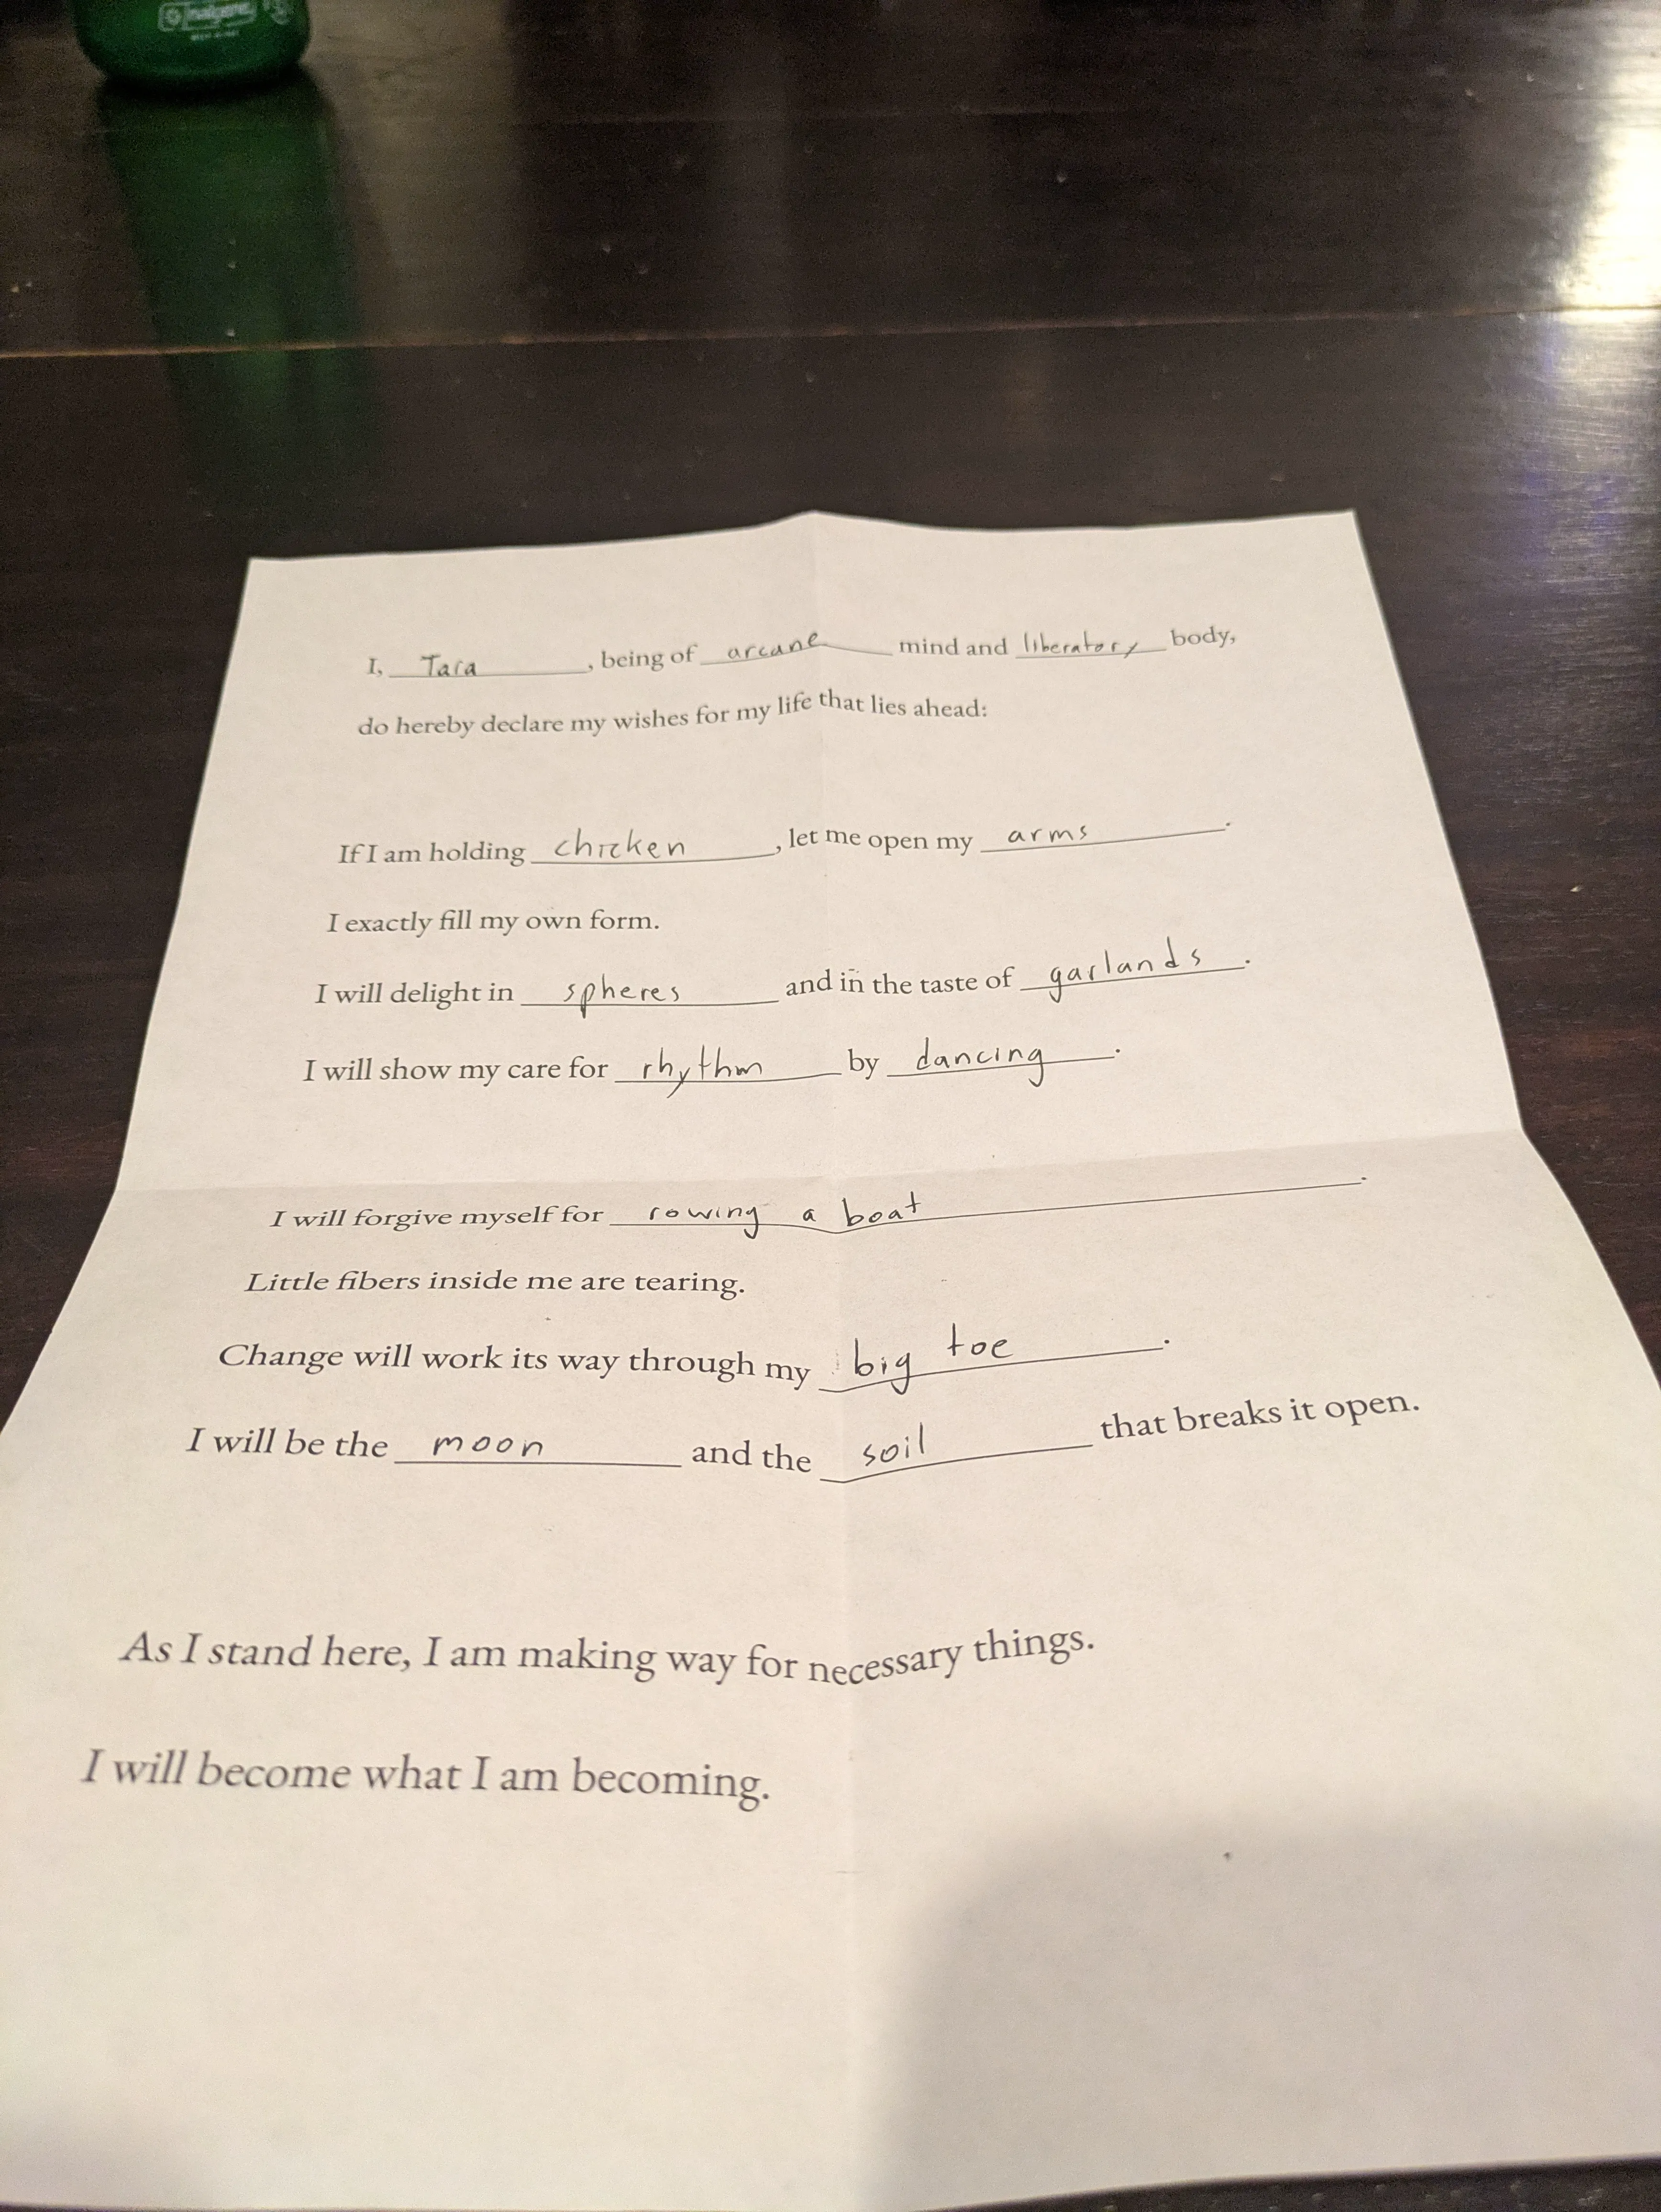 nalgene
I, Tara, being of arcane mind and liberatory body,
do hereby declare my wishes for my life that lies ahead:
If I am holding chicken, let me open my arms.
I exactly fill my own form.
I will delight in spheres and in the taste of garlands.
I will show my care for rhythm by dancing.
I will forgive myself for rowing a boat.
Little fibers inside me are tearing.
Change will work its way through my big toe.
I will be the moon and the soil that breaks it open.
As I stand here, I am making way for necessary things.
I will become what I am becoming.